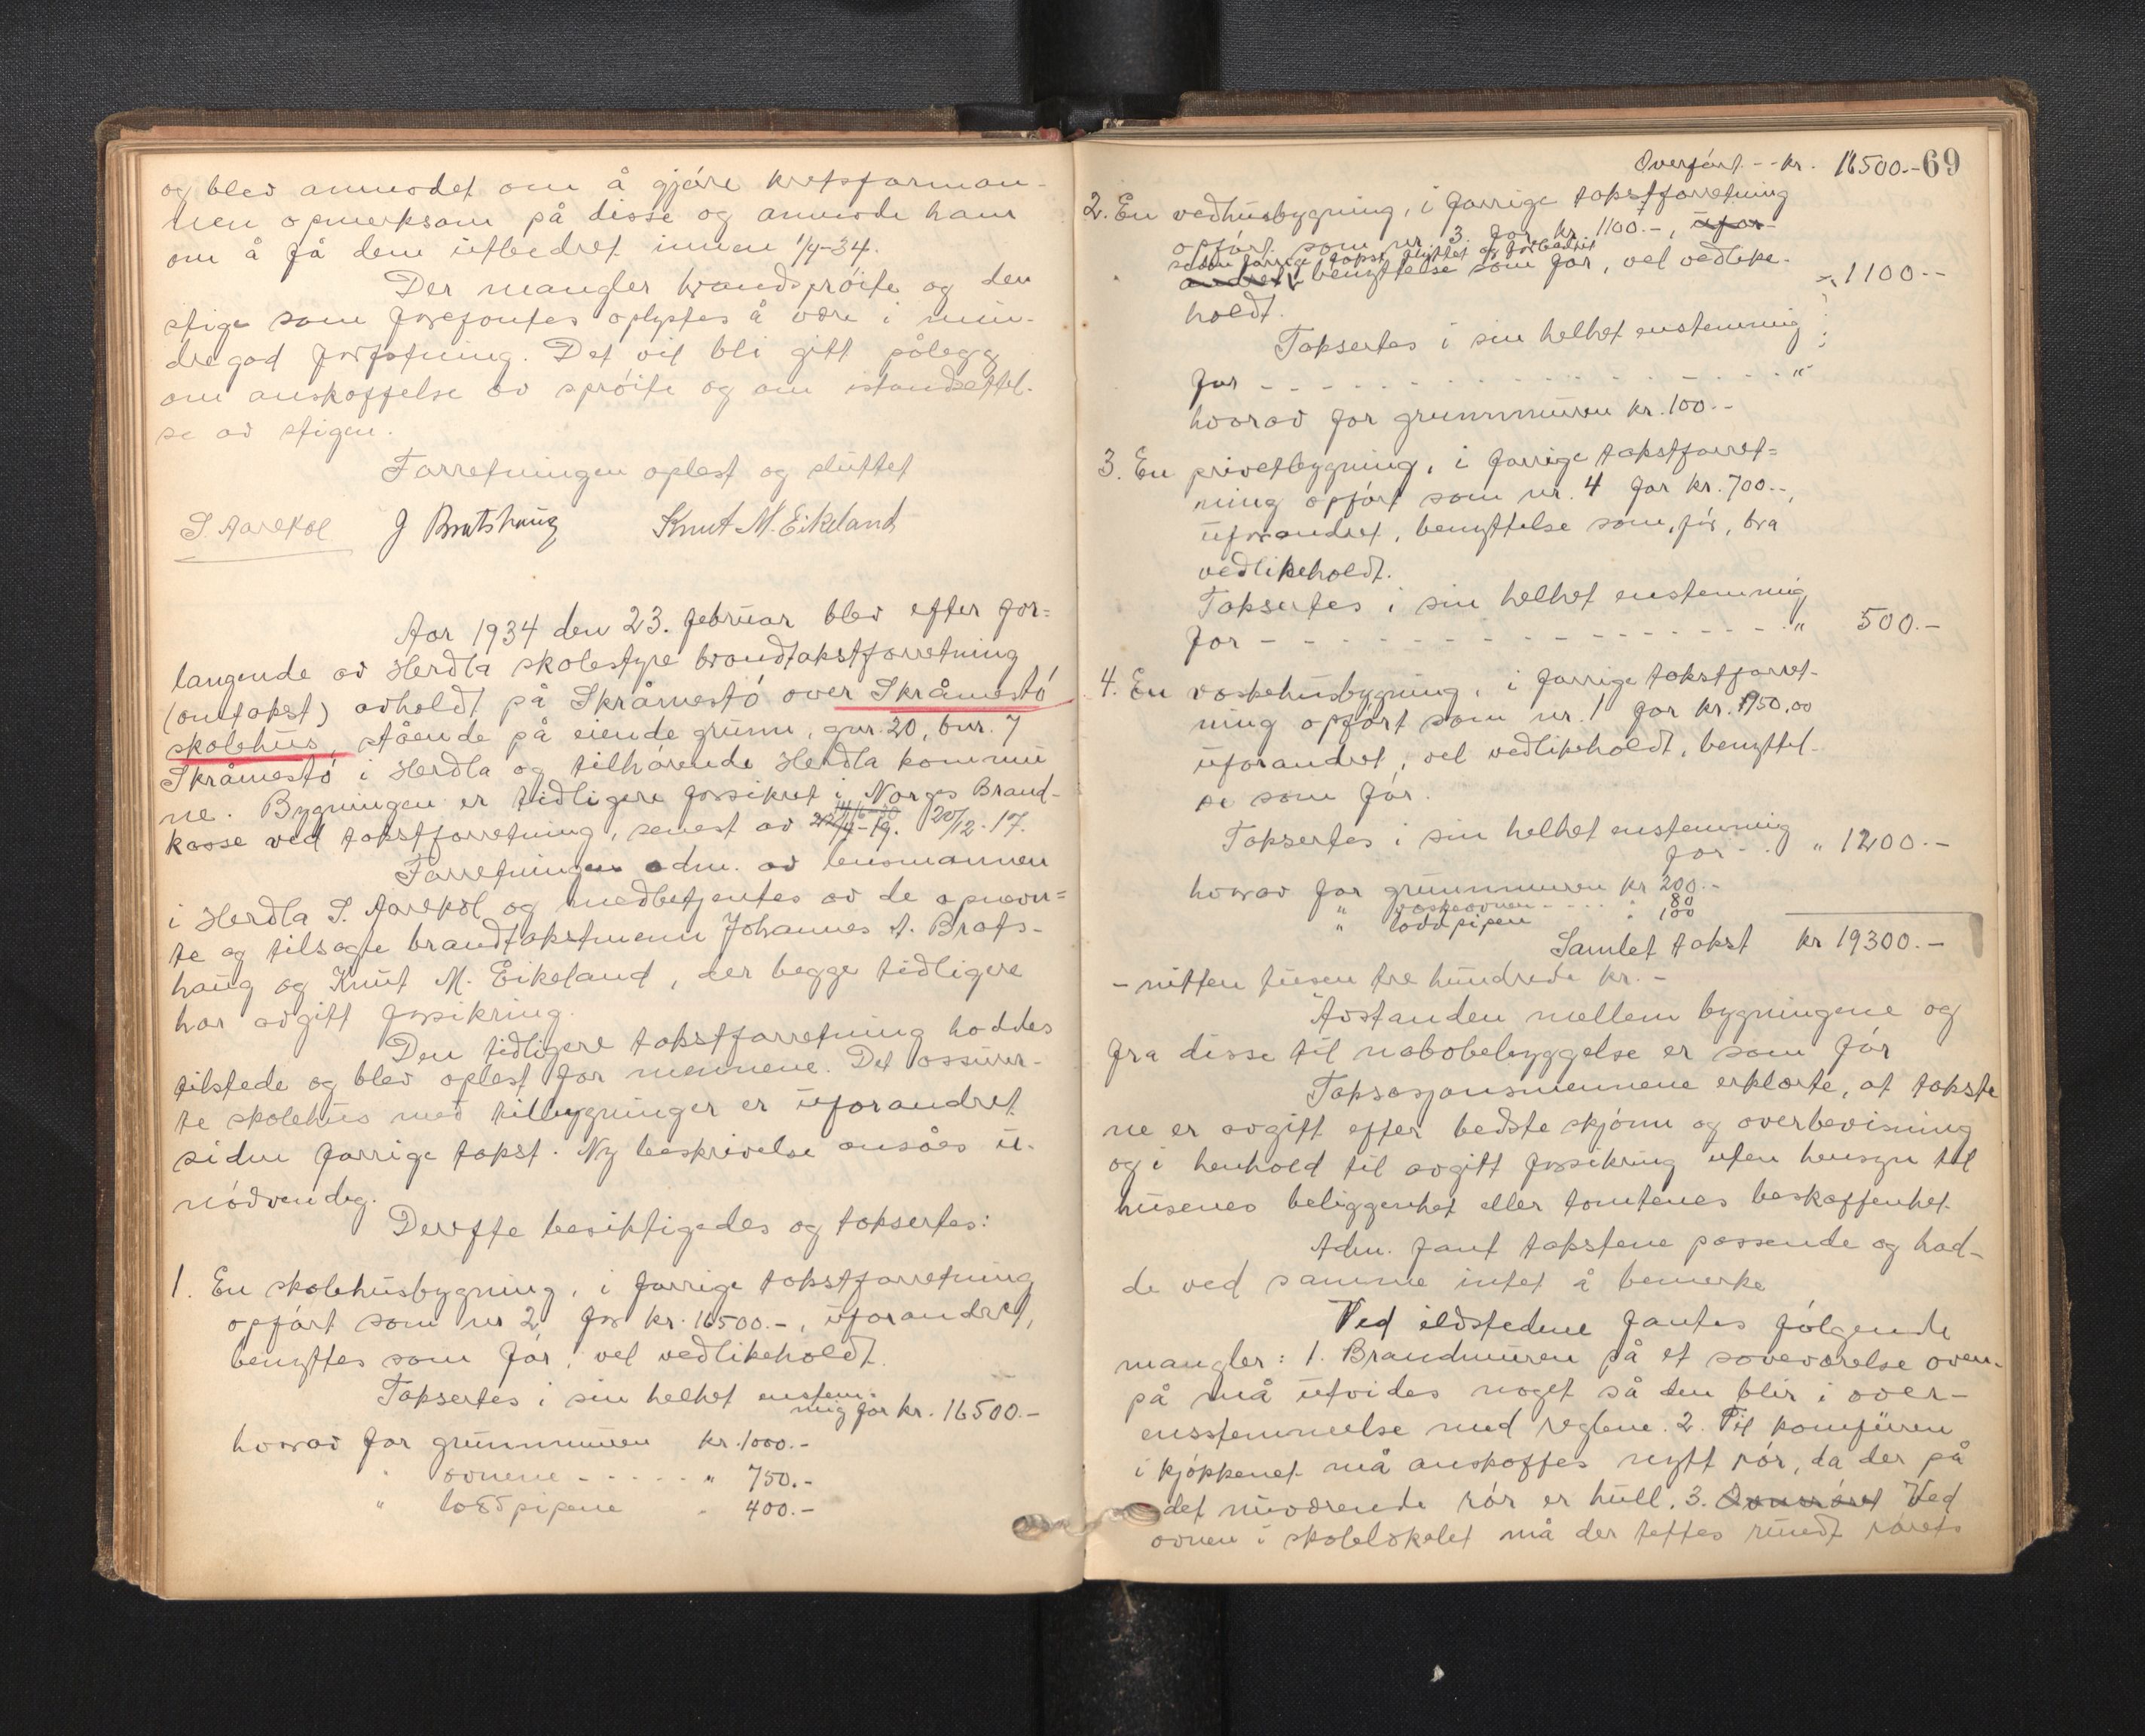 og blev anmodet om å gjøre kretsforman-
nen opmerksom på disse og anmode ham
om å få dem utbedret innen 1/4-34.
Der mangler brandsprøite og den
stige som forefantes oplystes å være i min-
dre god forfatning. Det vil bli gitt pålegg
om anskaffelse av sprøite og om istandsettel-
se av stigen.
Forretningen oplest og sluttet
J Bratshaug Knut M. Eikeland
Aar 1934 den 23. februar blev efter for-
langende av Herdla skolestyre brandtakstforretning
(omtakst) avholdt på Skråmestø over Skråmestø
skolehus, stående på eiende grunn, gnr. 20, bnr. 7
Skråmestø i Herdla og tilhørende Herdla kommu
ne. Bygningen er tidligere forsikret i Norges Brand-
kasse ved takstforretning, senest av 20/12-17.
Forretningen adm. av lensmannen
i Herdla S. Aarekol og medbetjentes av de opnevn-
te og tilsagte brandtakstmenn Johannes A. Brats-
haug og Knut M. Eikeland, der begge tidligere
har avgitt forsikring.
Den tidligere takstforretning haddes
tilstede og blev oplest for mennene. Det assurer-
te skolehus med tilbygninger er uforandret
siden forrige takst. Ny beskrivelse ansåes u-
nødvendig.
Derefte besiktigedes og taksertes:
1. En skolehusbygning, i forrige takstforretning
opført som nr 2 for kr. 16500.-, uforandret,
benyttes som før, vel vedlikeholdt.
Taksertes i sin helhet enstem-
mig for kr. 16500.-
hvorav for grunnmuren kr. 1000.-
" ovnene - - - - - " 750.-
" loddpipene " 400.-
Overført - - kr. 16500.- 69
2. En vedhusbygning, i forrige takstforretning
opført som nr. 3 for kr. 1100.-, ufor-
siden forrige takst flyttet og forbedret
andret, benyttelse som før, vel vedlike-
holdt.
Taksertes i sin helhet enstemmig
for - - - - - - - - - - " 1100.-
hvorav for grunnmuren kr. 100.-
3. En privetbygning, i forrige takstforret-
ning opført som nr. 4 for kr. 700.-,
uforandret, benyttelse som før, bra
vedlikeholdt.
Taksertes i sin helhet enstemmig
for - - - - - - - - - - " 500.-
4. En vaskehusbygning, i forrige takstforret-
ning opført som nr. 1 for kr. 1950,00
uforandret, vel vedlikeholdt, benyttel-
se som før.
Taksertes i sin helhet enstemmig
for - - " 1200.-
hvorav for grunnmuren kr 200.-
" vaskeovnen - - - - " 80
" loddpipen " 100
Samlet takst kr 19300.-
- nitten tusen tre hundrede kr. -
Avstanden mellem bygningene og
fra disse til nabobebyggelse er som før
Taksasjonsmennene erklærte, at takste
ne er avgitt efter bedste skjønn og overbevisning
og i henhold til avgitt forsikring uten hensyn til
husenes beliggenhet eller tomtenes beskaffenhet.
Adm. fant takstene passende og had-
de ved samme intet å bemerke
Ved ildstedene fantes følgende
mangler: 1. Brandmuren på et soveværelse oven-
på må utvides noget så den blir i over-
ensstemmelse med reglene. 2. Til komfüren
i kjøkkenet må anskaffes nytt rør, da der på
det nuværende rør er hull. 3. Ovnsrøret Ved
ovnen i skolelokalet må der tettes rundt rørets